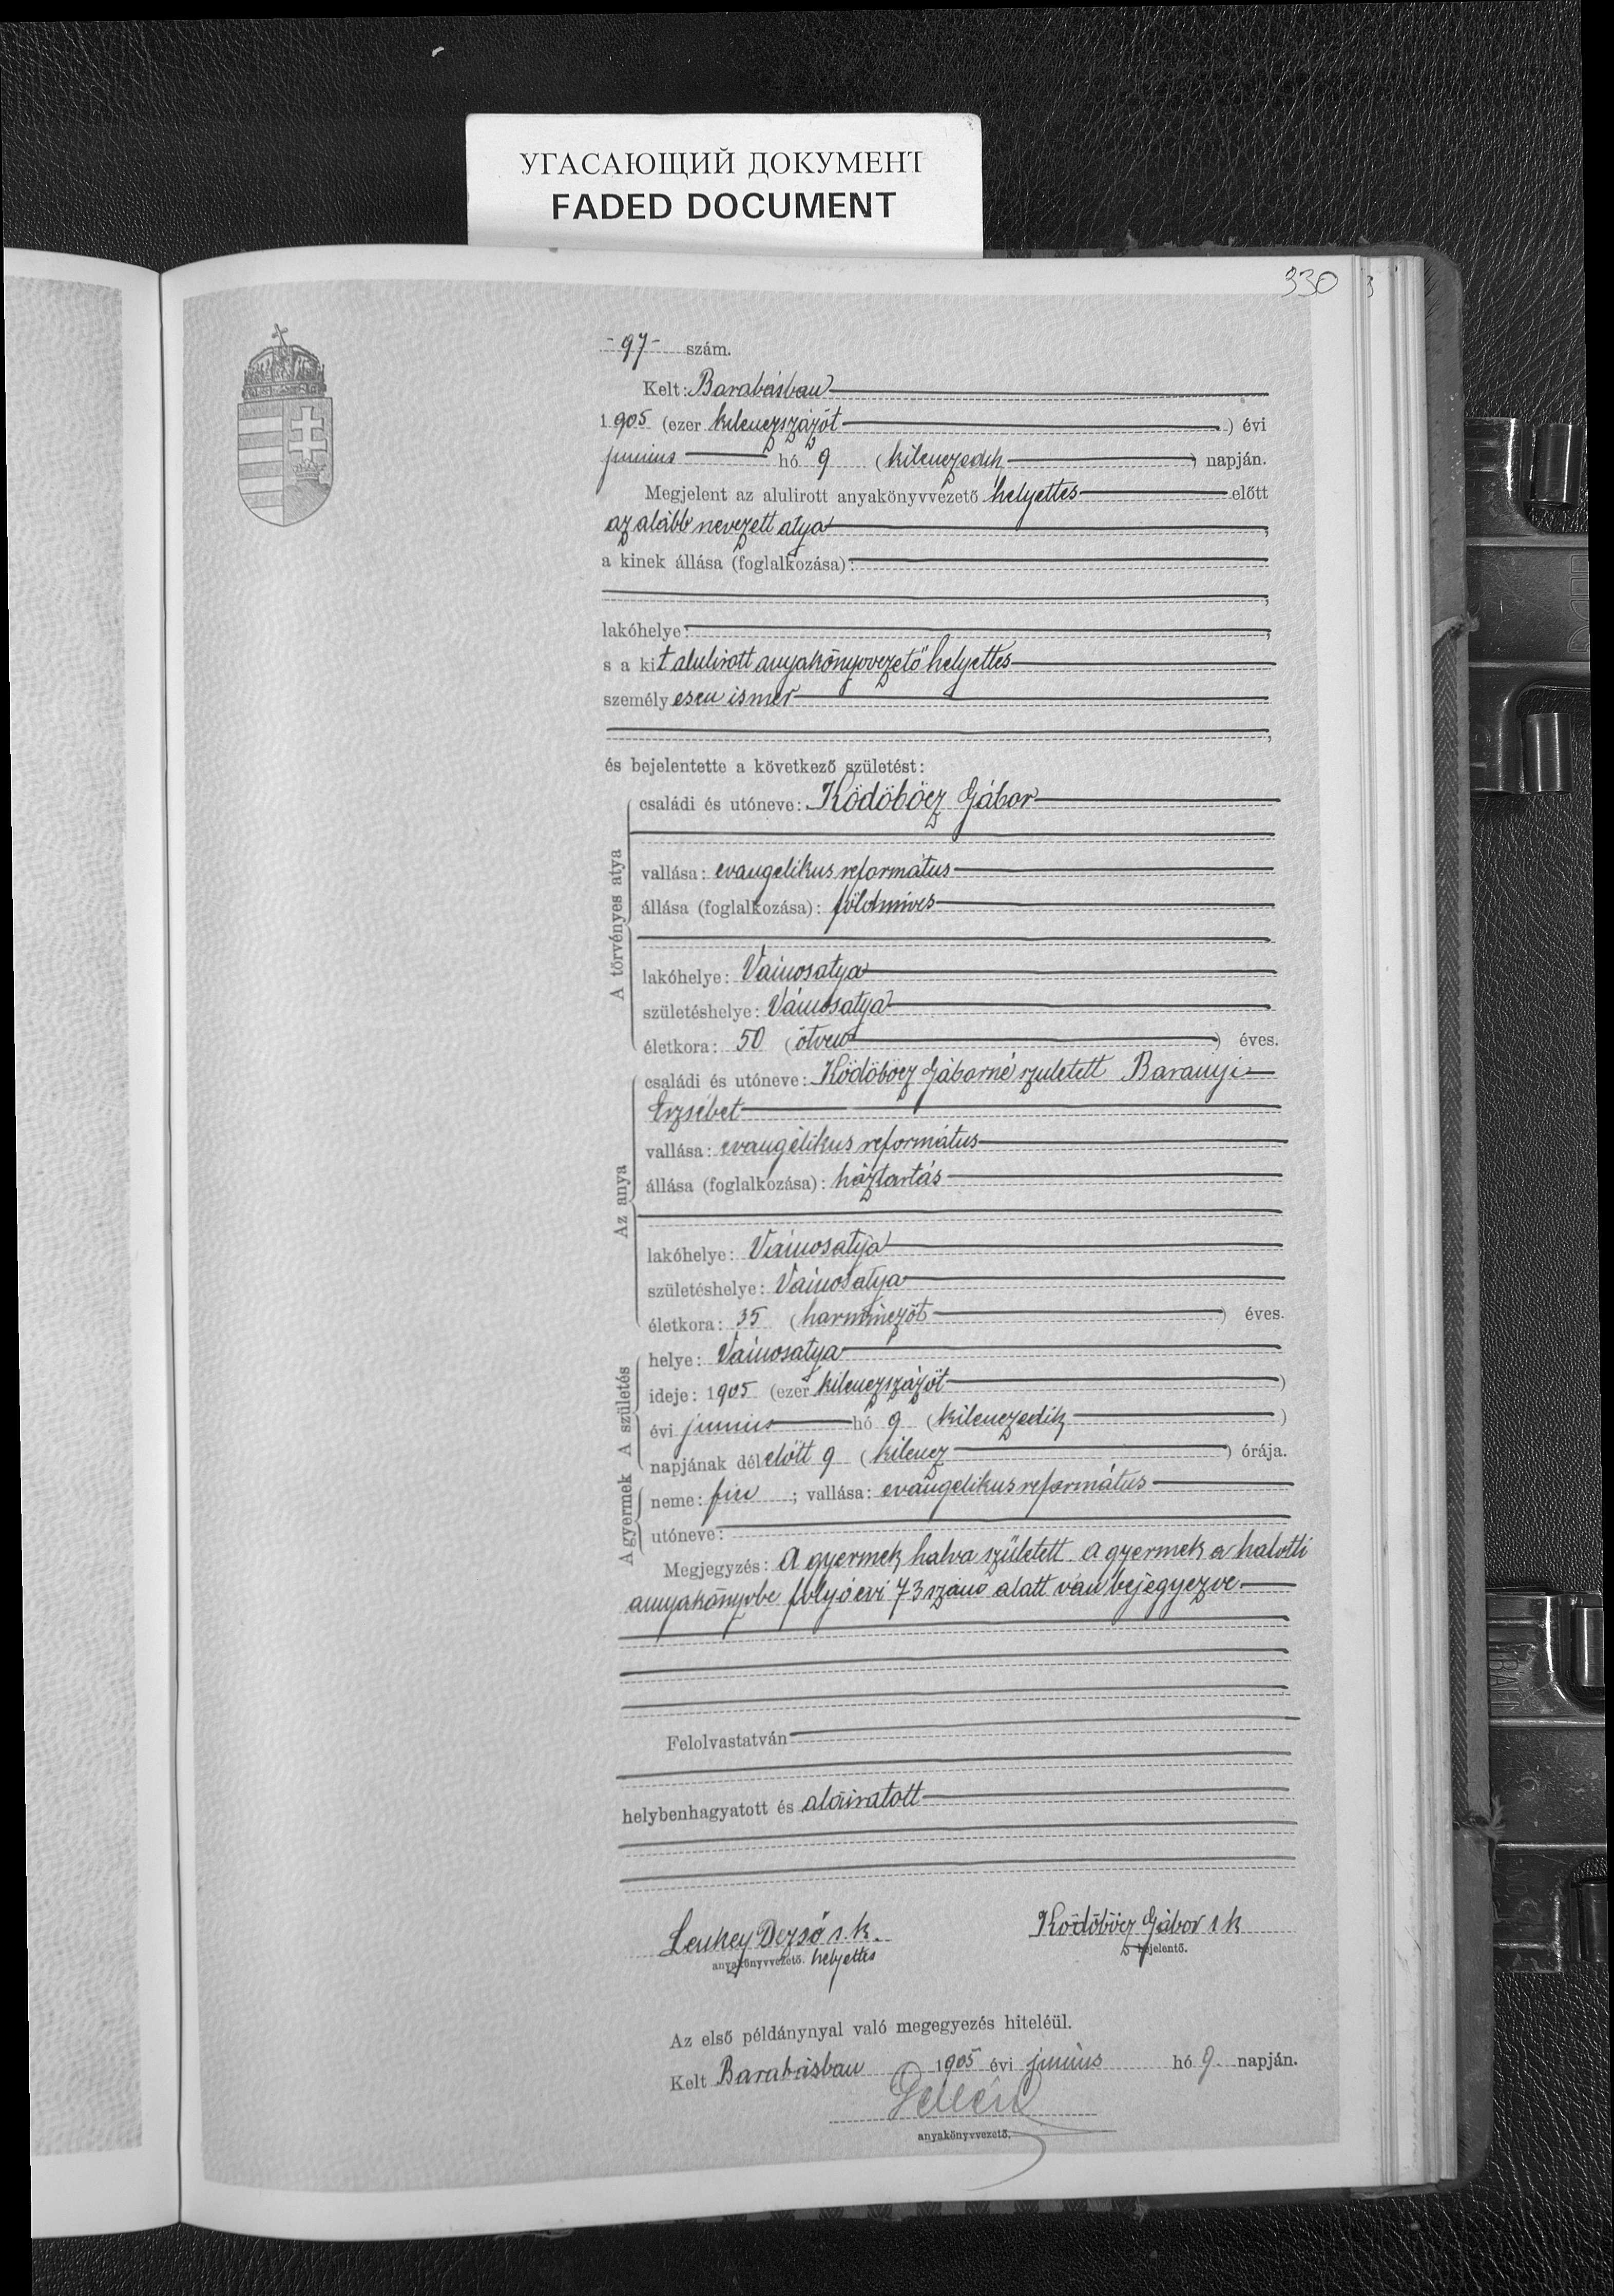 УГАСАЮЩИЙ ДОКУМЕНТ
FADED DOCUMENT
330
- 97 - szám.
Kelt: Barabásban
1905 (ezer kilenczszázöt) évi
junius hó 9 (kilenczedik) napján.
Megjelent az alulirott anyakönyvvezető helyettes előtt
az alább nevezett atya,
a kinek állása (foglalkozása):
lakóhelye:
s a kit alulirott anyakönyvvezető helyettes
személyesen ismer
és bejelentette a következő születést:
A törvényes atya
családi és utóneve: Ködöböcz Gábor
vallása: evangelikus református
állása (foglalkozása): földmíves
lakóhelye: Vámosatya
születéshelye: Vámosatya
életkora: 50 (ötven) éves.
Az anya
családi és utóneve: Ködöböcz Gáborné született Baranyi
Erzsébet
vallása: evangélikus református
állása (foglalkozása): háztartás
lakóhelye: Vámosatya
születéshelye: Vámosatya
életkora: 35 (harminczöt) éves.
A születés
helye: Vámosatya
ideje: 1905 (ezer kilenczszázöt)
évi junius hó 9 (kilenczedik)
napjának délelőtt 9 (kilencz) órája.
A gyermek
neme: fiu; vallása: evangelikus református
utóneve:
Megjegyzés: A gyermek halva született. A gyermek a halotti
anyakönyvbe folyó évi 73 szám alatt van bejegyezve
Felolvastatván
helybenhagyatott és aláiratott
Lenkey Dezső s. k. Ködöböcz Gábor s k
anyakönyvvezető helyettes bejelentő.
Az első példánynyal való megegyezés hiteléül.
Kelt Barabásban 1905 évi junius hó 9. napján.
anyakönyvvezető.